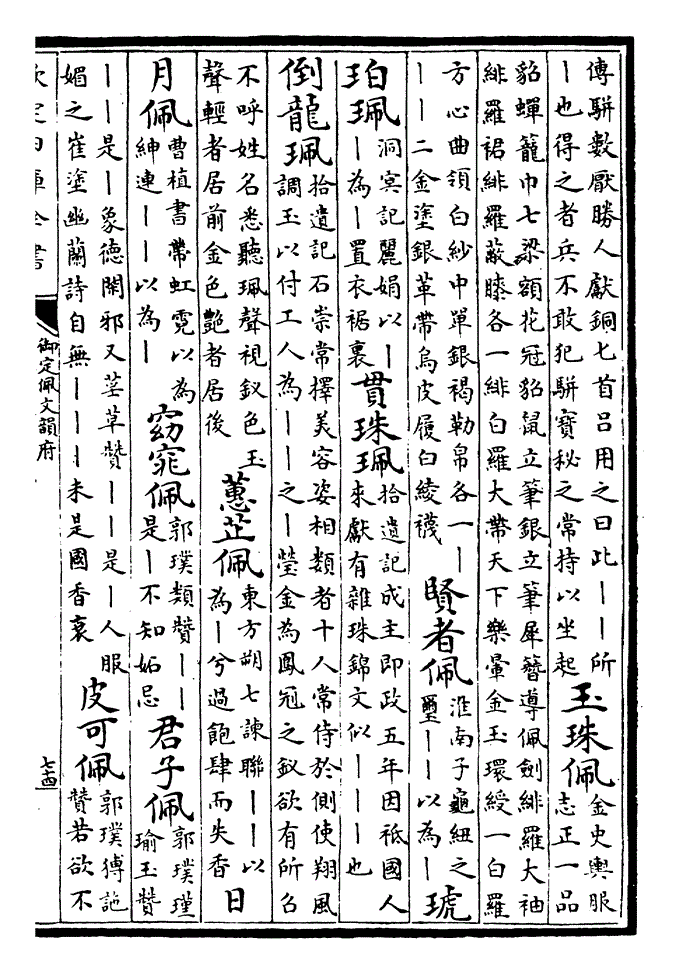 傅駢數厭勝人獻銅匕首呂用之曰此——所
—也得之者兵不敢犯駢寶秘之常持以坐起
玉珠佩
金史輿服
志正一品
貂蟬籠巾七梁額花冠貂鼠立筆銀立筆犀簪導佩劍緋羅大袖
緋羅裙緋羅蔽膝各一緋白羅大帶天下樂暈金玉環綬一白羅
方心曲領白紗中單銀褐勒帛各一—
——二金塗銀革帶烏皮履白綾襪
賢者佩
淮南子龜紐之
璽——以為—
琥
珀珮
洞冥記麗娟以—
—為—置衣裾裏
貫珠珮
拾遺記成王即政五年因祇國人
來獻有雜珠錦文似———也
倒龍珮
拾遺記石崇常擇美容姿相類者十人常侍於側使翔風
調玉以付工人為——之—瑩金為鳳冠之釵欲有所召
不呼姓名悉聽珮聲視釵色玉
聲輕者居前金色艷者居後
蕙芷佩
東方朔七諫聯——以
為—兮過鮑肆而失香
日
月佩
曹植書帶虹霓以為
紳連——以為—
窈窕佩
郭璞類贊——
是—不知妬忌
君子佩
郭璞瑾
瑜玉贊
——是—象德閑邪又荎草贊——是—人服
媚之崔塗幽蘭詩自無———未是國香衰
皮可佩
郭璞猼訑
贊若欲不
欽定四庫全書
御定佩文韻府
七十四